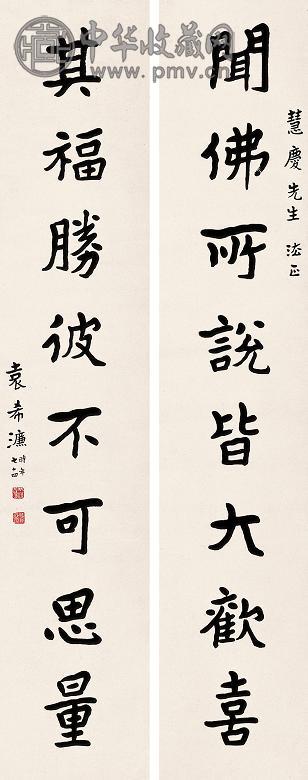 中华收藏网
www.pmv.cn
慧慶先生 法正
聞佛所說皆大歡喜
其福勝彼不可思量
袁希濂 時年七十四